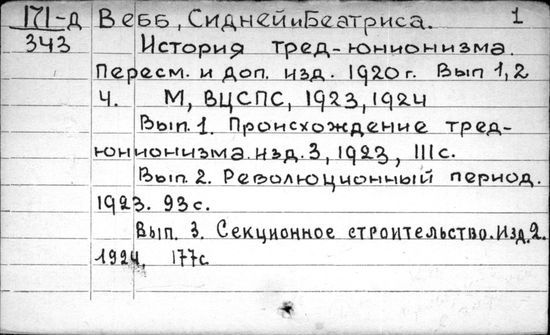 171-д Вебб, Сидней и Беатриса. 1
343 История тред-юнионизма.
Пересм. и доп. изд. 1920г. Вып 1,2
4. М, ВЦСПС, 1923, 1924
Вып. 1. Происхождение тред-
юнионизма. изд. 3, 1923, 111с.
Вып. 2. Революционный период.
1923. 93с.
Вып. 3. Секционное строительство. Изд. 2.
1924, 177с